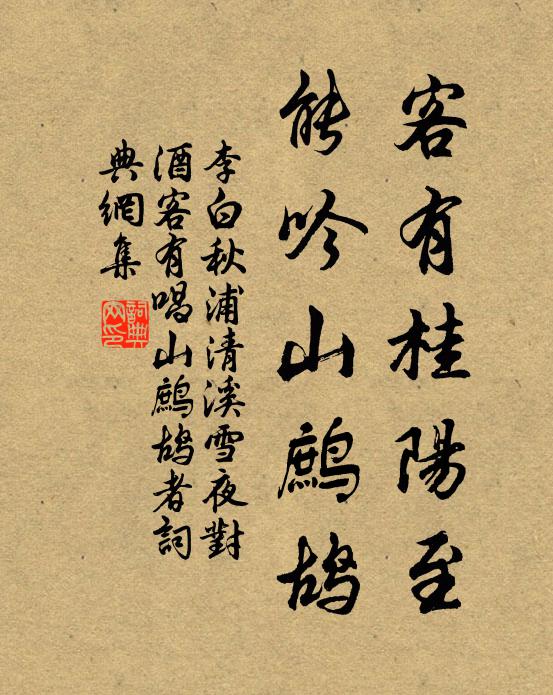 客有桂陽至
能吟山鷓鴣
李白秋浦清溪雪夜對
酒客有唱山鷓鴣者詞
典網集
詞典
网印